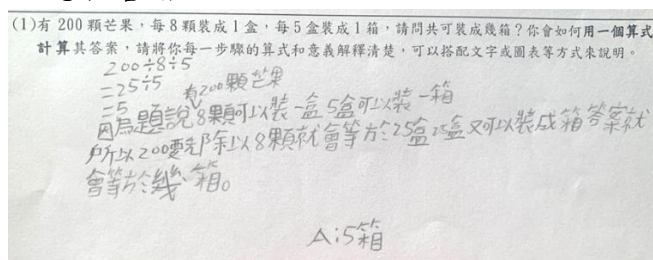 (1)有 200 顆芒果，每 8 顆裝成 1 盒，每 5 盒裝成 1 箱，請問共可裝成幾箱？你會如何用一個算式
計算其答案，請將你每一步驟的算式和意義解釋清楚，可以搭配文字或圖表等方式來說明。
200÷8÷5
=25÷5
=5
有200顆芒果
因為題說8顆可以裝一盒5盒可以裝一箱
所以200要先除以8顆就會等於25盒25盒又可以裝成箱答案就
會等於幾箱。
A:5箱